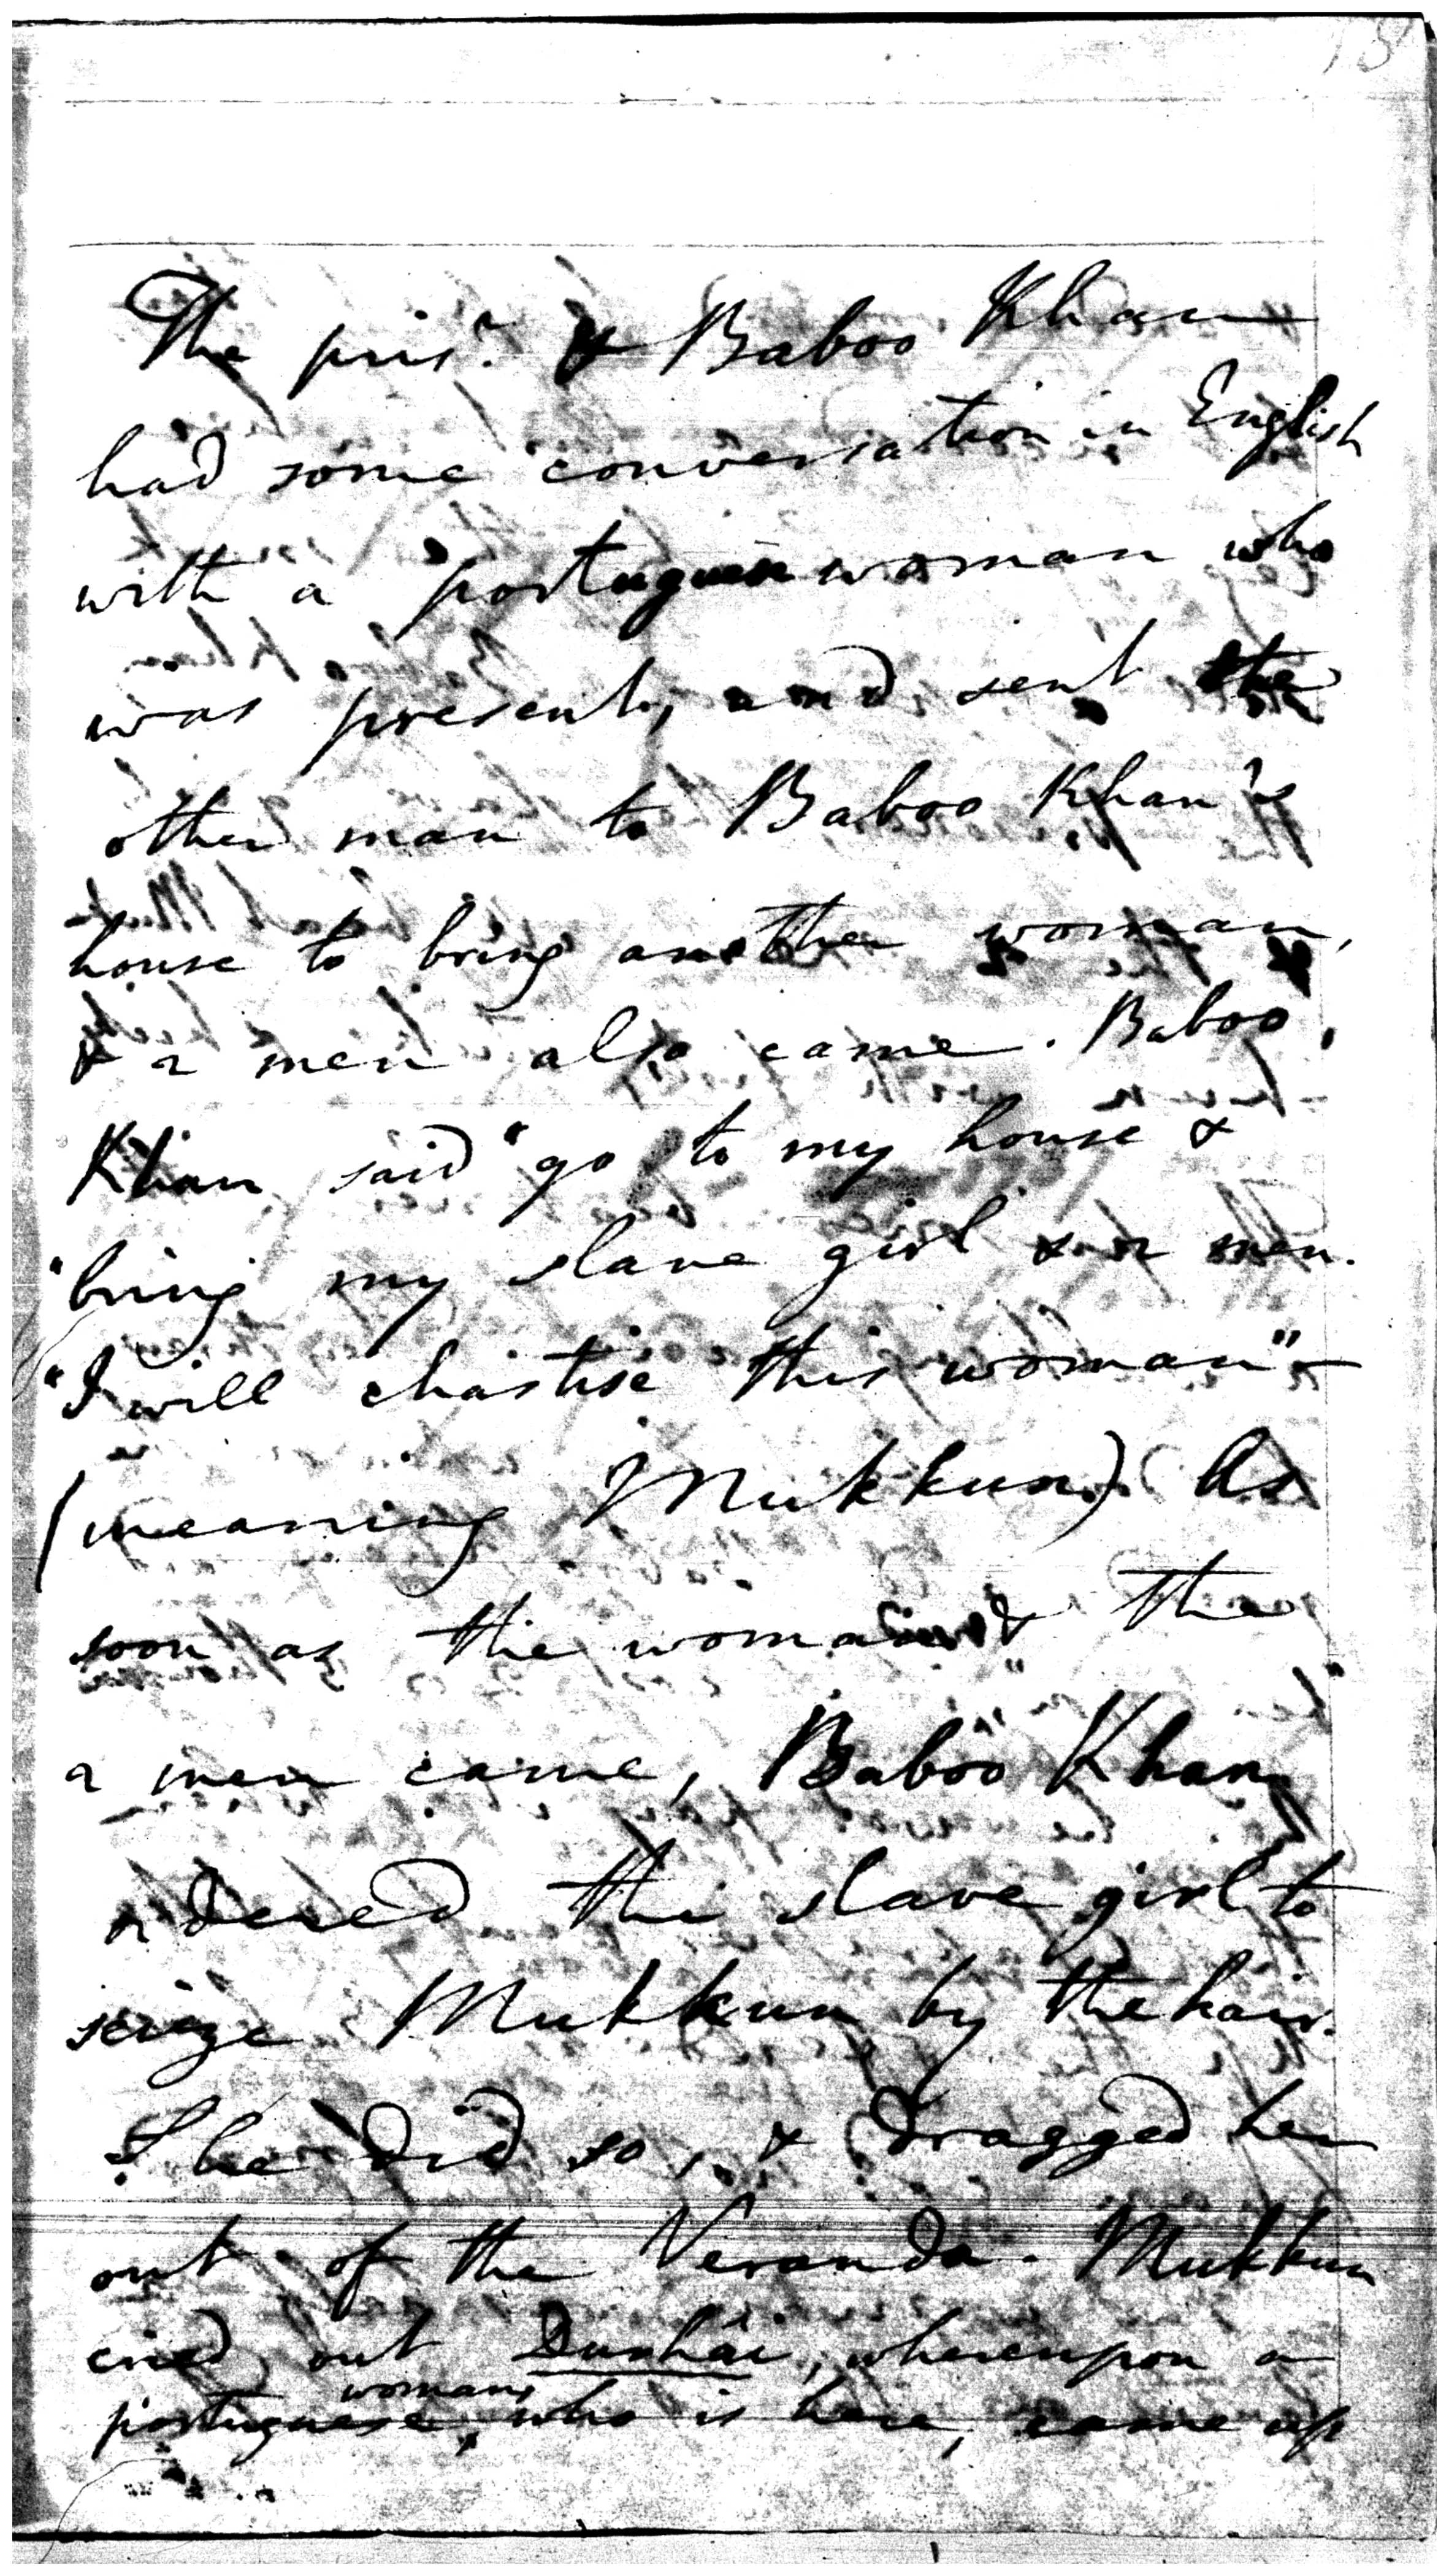 The pris.r & Baboo Khan
had some conversation in English
with a portuguese woman who
was present, and sent the
other man to Baboo Khan's
house to bring another woman,
& 2 men also came. Baboo
Khan said "go to my house &
"bring my slave girl & 2 men.
"I will chastise this woman" -
(meaning Mukkun). As
soon as the woman & the
2 men came, Baboo Khan
ordered the slave girl to
seize Mukkun by the hair.
She did so, & dragged her
out of the Veranda. Mukkun
cried out Duahai, whereupon a
portuguese woman, who is here, came up